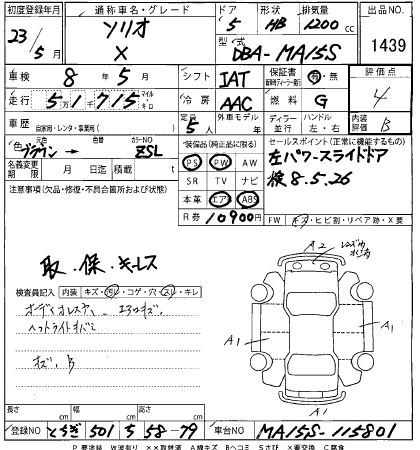 初度登録年月 通称車名・グレード ドア 形状 排気量 出品NO
23/5月 ソリオ X 5 HB 1200cc 1439
型式 DBA-MA15S
車検 8年5月 シフト IAT 保証書 有・無 評価点 4
走行 51千715 マイル キロ 冷房 AAC 燃料 G
車歴 自家用・レンタ・事業用( ) 定員 5人 外車モデル 年 ディーラー 並行 ハンドル 左・右 内装評価 B
色 ブラウン → 色番 カラーNO ZSL
装備品(純正品に限る) PS PW AW
SR TV ナビ
本革 エアB ABS
R券 10900円
セールスポイント(正常に機能するもの)
左パワースライドドア
検8.5.26
名義変更期限 月 日迄 積載 t
注意事項(欠品・修復・不具合箇所および状態)
FW キズ・ヒビ割・リペア跡・X要
取・保・キーレス
検査員記入 内装 キズ・汚レ・コゲ・穴・スレ・キレ
オーディオレス エアロキズ
ヘッドライトキバミ
キズ、B
A2
A1
A1
A1
長さ cm 幅 cm 高さ cm
登録NO とちぎ 501 そ 58-79 車台NO MA15S-115801
P 要塗装 W波有り XX取替済 A線キズ Bヘコミ Sさび X要交換 C腐食